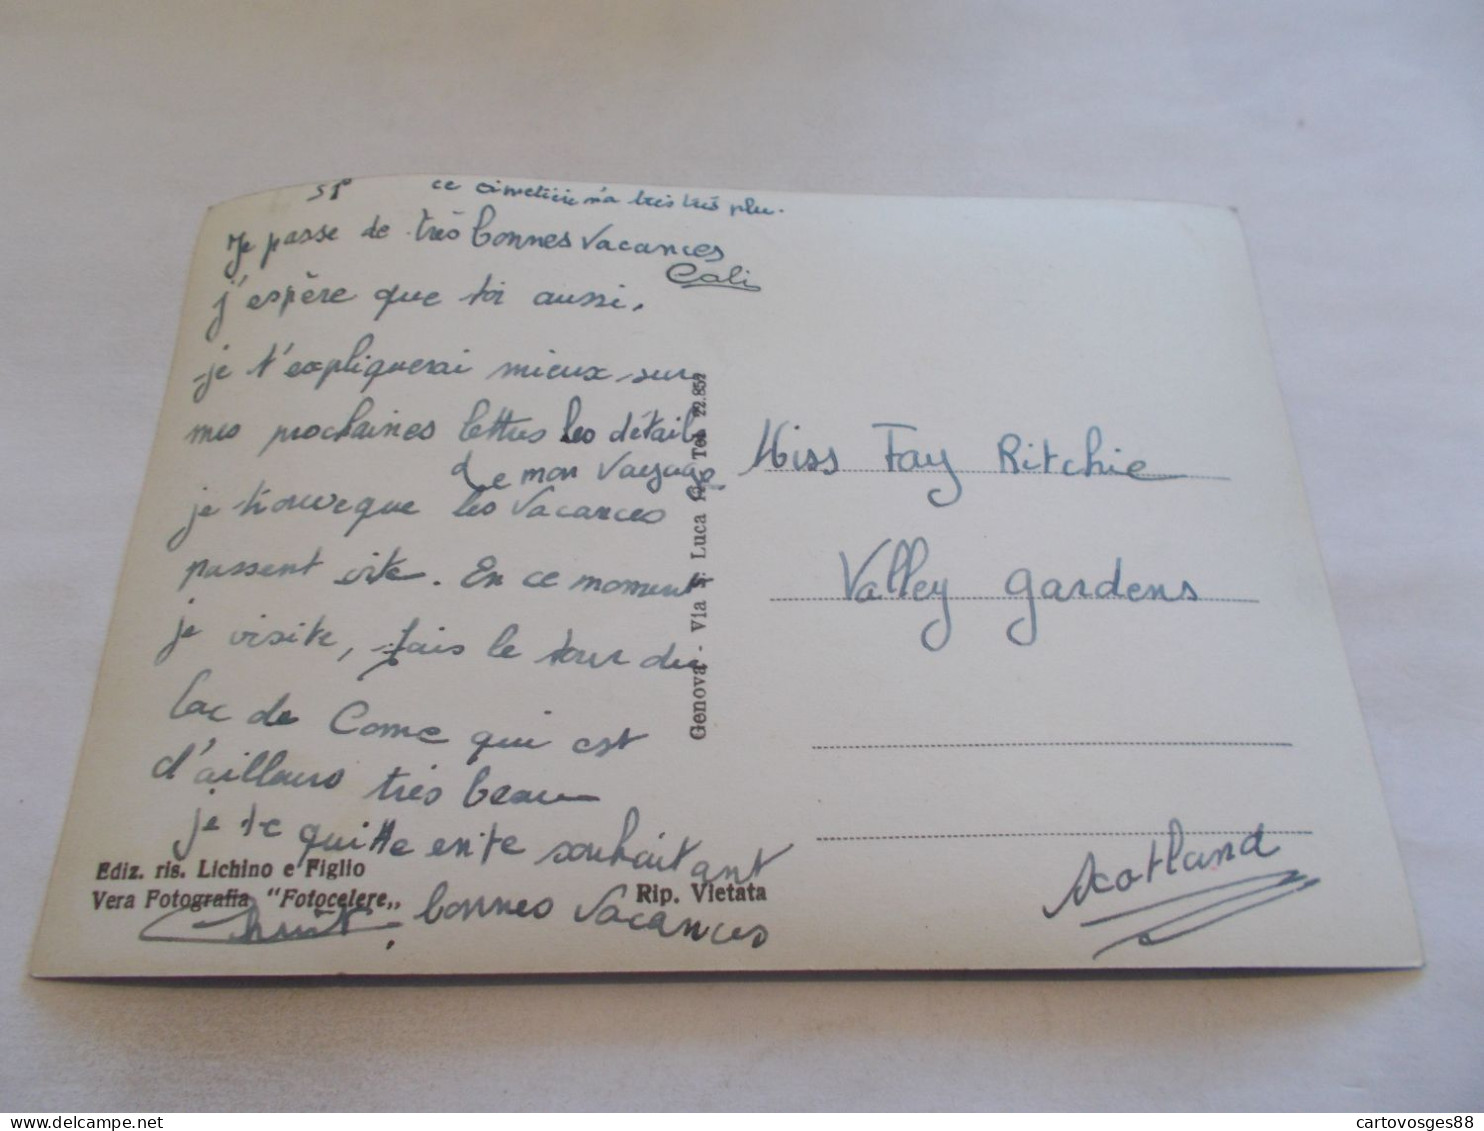 51°
ce cimetière m'a très très plu.
Je passe de très bonnes vacances
Cali
j'espère que toi aussi.
je t'expliquerai mieux sur
mes prochaines lettres les détails
de mon voyage
je trouve que les vacances
passent vite. En ce moment
je visite, fais le tour du
lac de Come qui est
d'ailleurs très beau
je te quitte en te souhaitant
bonnes vacances
Ediz. ris. Lichino e Figlio
Vera Fotografia "Fotocelere„
Rip. Vietata
Genova - Via S. Luca Tel. 22.852
Miss Fay Ritchie
Valley gardens
Scotland
cartovosges88